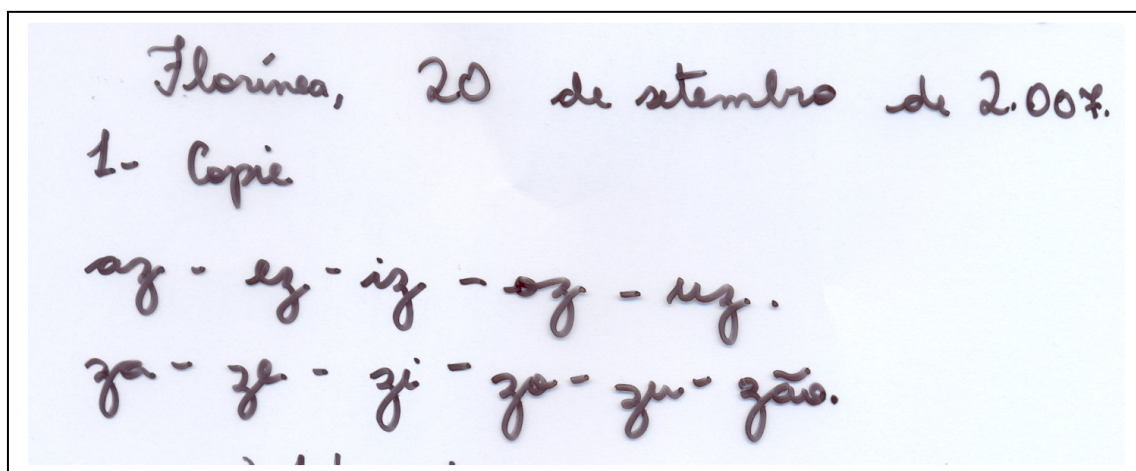 Florínea, 20 de setembro de 2.007.
1- Copie
az - ez - iz - oz - uz.
za - ze - zi - zo - zu - zão.